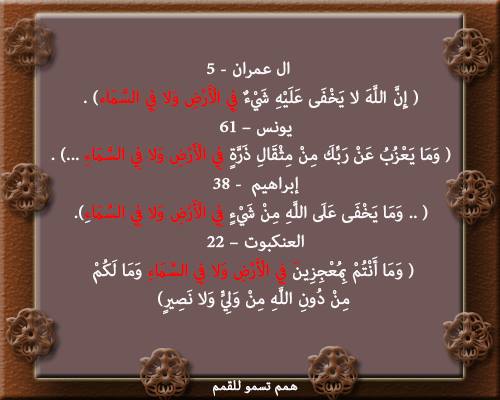 ال عمران - 5
( إِنَّ اللَّهَ لا يَخْفَى عَلَيْهِ شَيْءٌ فِي الْأَرْضِ وَلا فِي السَّمَاءِ) .
يونس – 61
( وَمَا يَعْزُبُ عَنْ رَبِّكَ مِنْ مِثْقَالِ ذَرَّةٍ فِي الْأَرْضِ وَلا فِي السَّمَاءِ ...) .
إبراهيم - 38
( .. وَمَا يَخْفَى عَلَى اللَّهِ مِنْ شَيْءٍ فِي الْأَرْضِ وَلا فِي السَّمَاءِ).
العنكبوت – 22
( وَمَا أَنْتُمْ بِمُعْجِزِينَ فِي الْأَرْضِ وَلا فِي السَّمَاءِ وَمَا لَكُمْ
مِنْ دُونِ اللَّهِ مِنْ وَلِيٍّ وَلا نَصِيرٍ)
همم تسمو للقمم